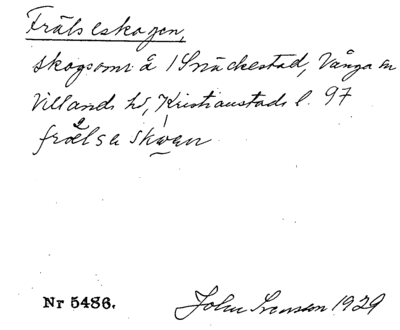 Frälseskogen,
skogsomr å 1 Snäckestad, Vånga sn
Villands hd, Kristianstads l. 97
frælsa skwæn
Nr 5486.
John Svensson 1929